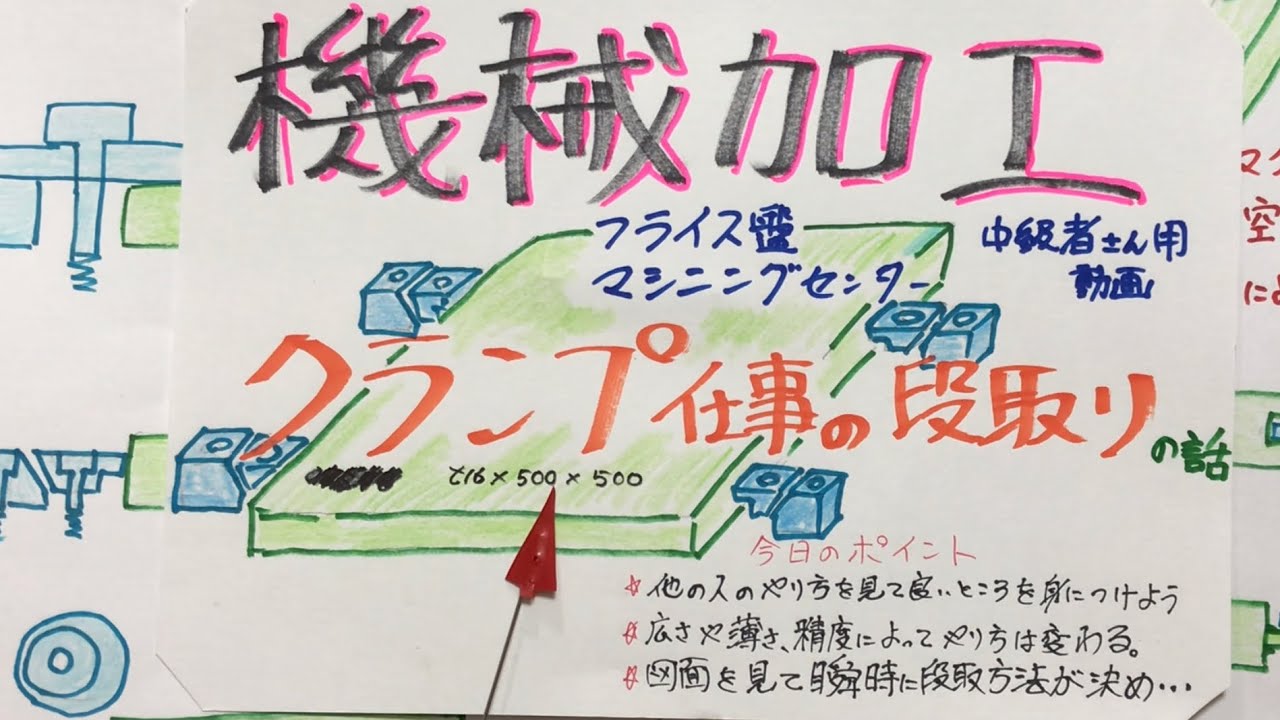 機械加工
フライス盤
マシニングセンター
中級者さん用
動画
クランプ仕事の段取りの話
t16×500×500
今日のポイント
☆他の人のやり方を見て良いところを身につけよう
☆広さや薄さ、精度によってやり方は変わる。
☆図面を見て瞬時に段取方法が決め…
マ
空
に